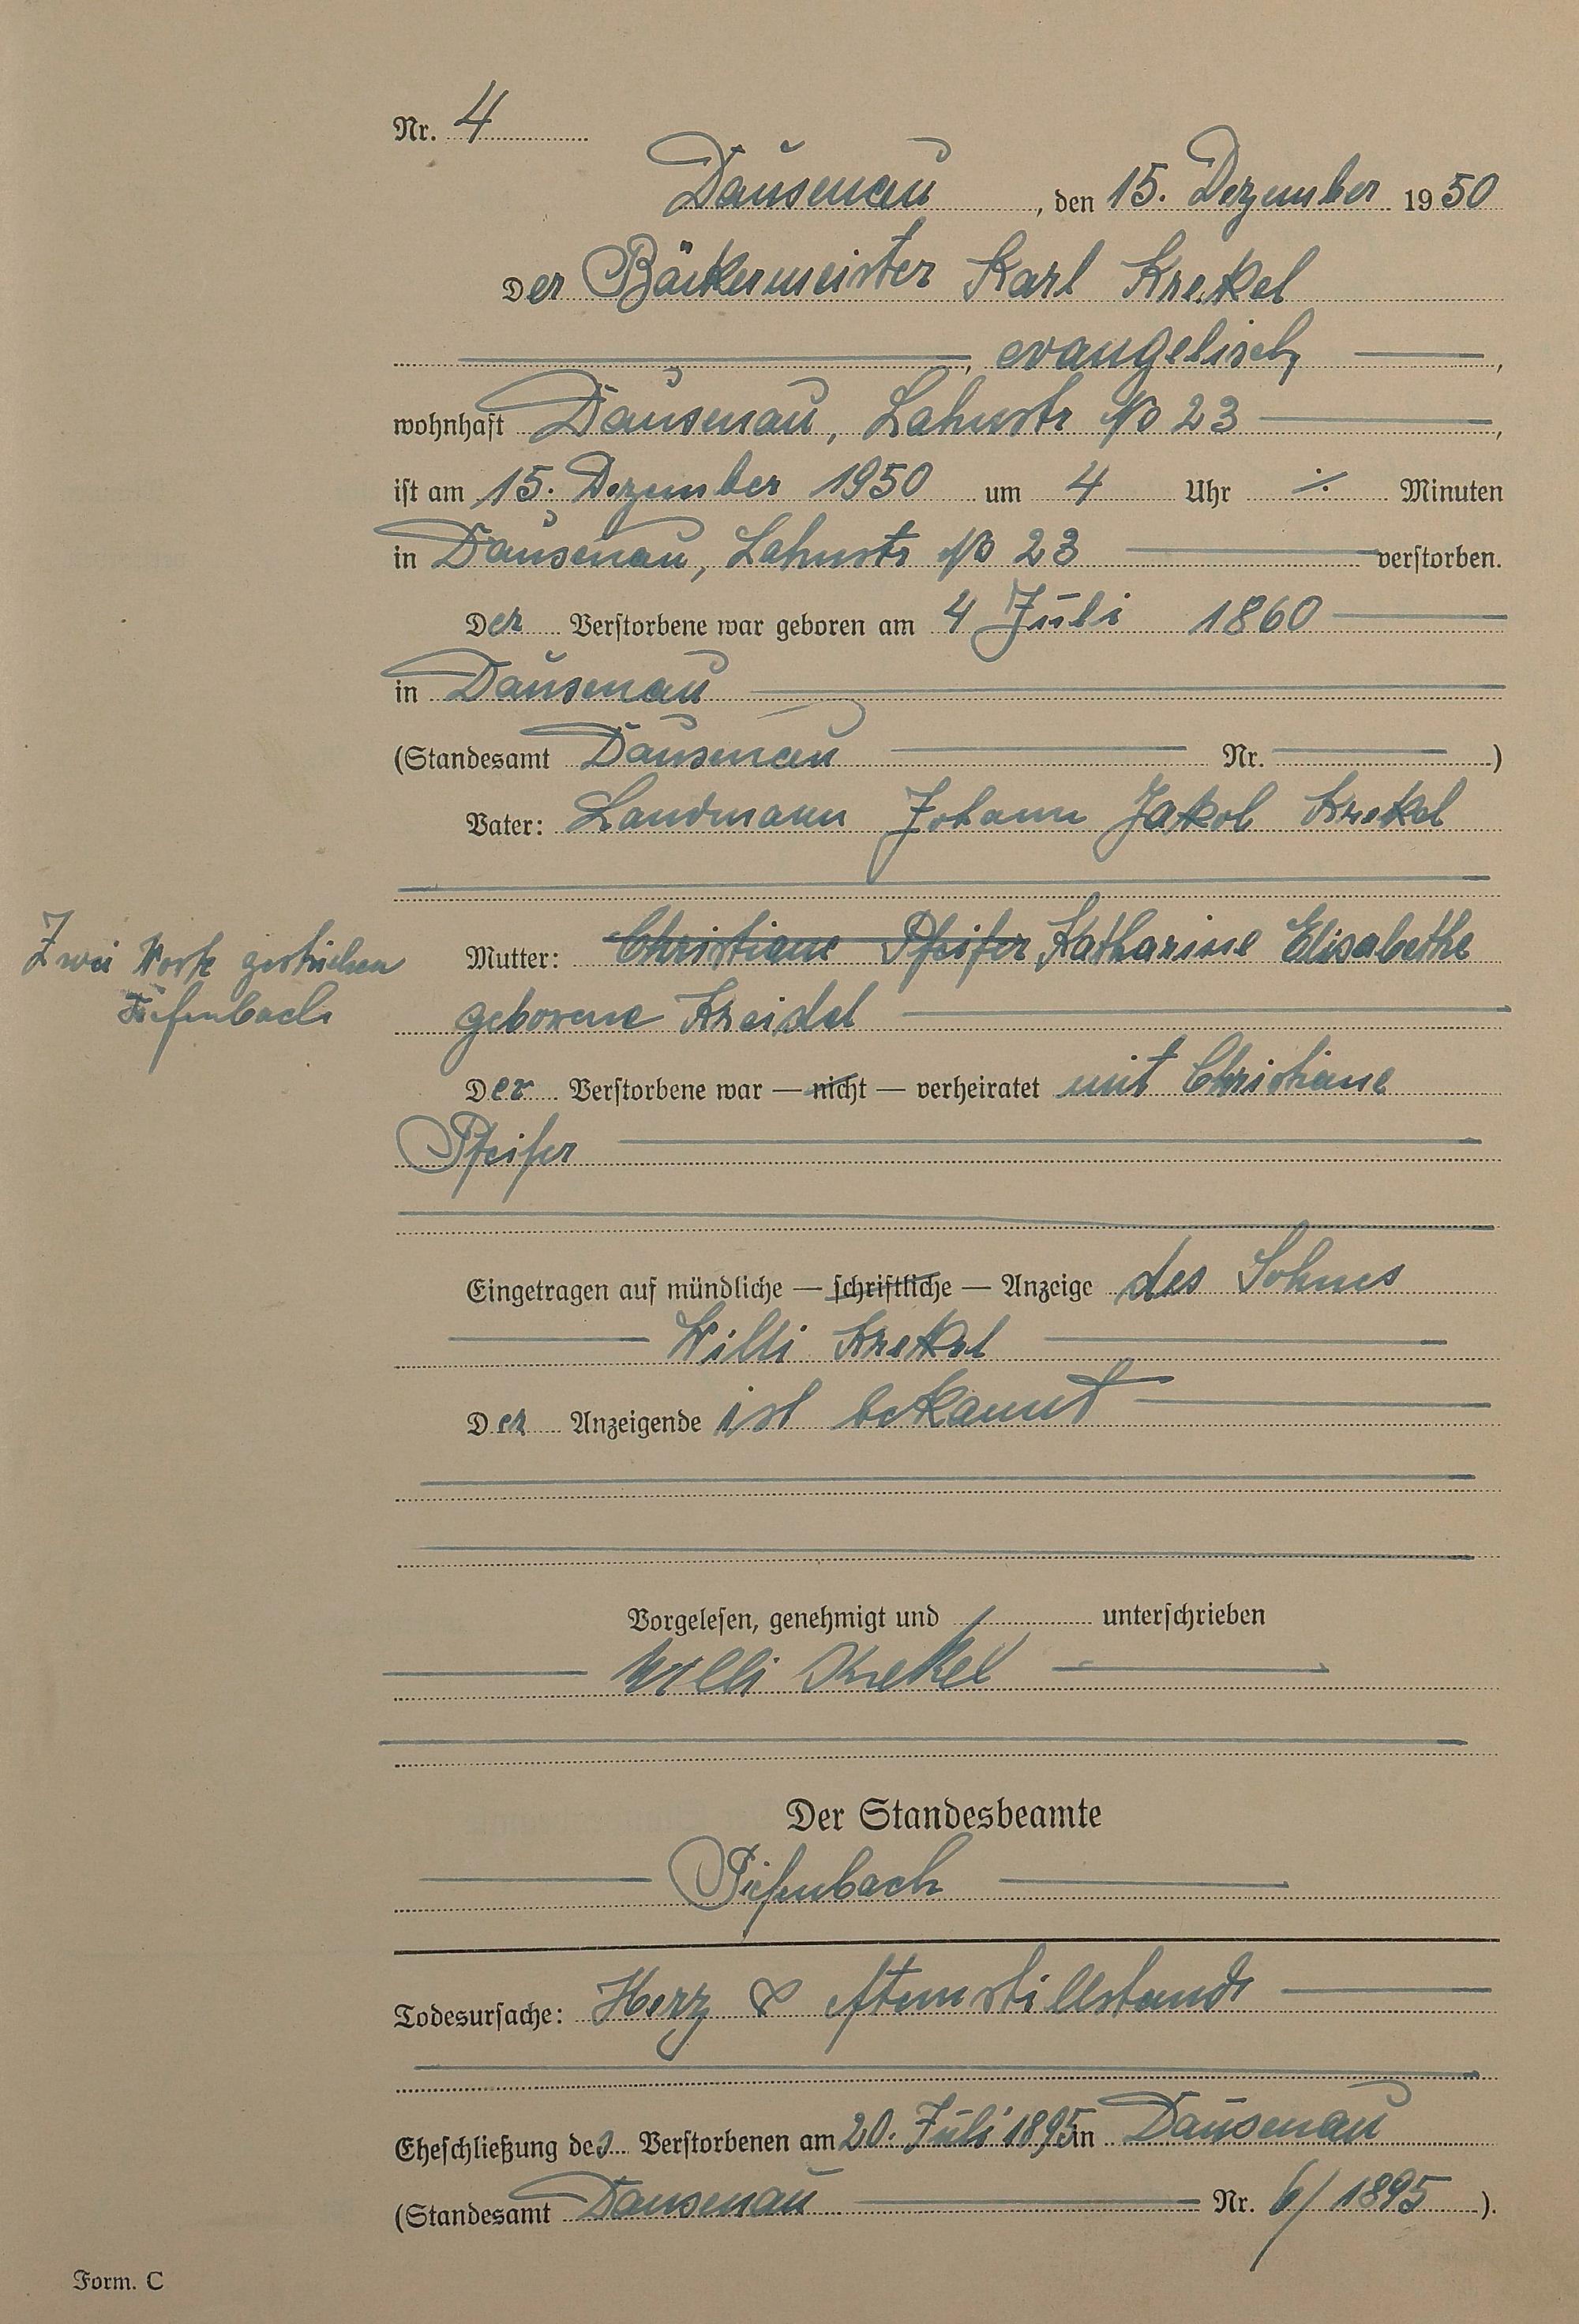 Nr. 4
Dausenau, den 15. Dezember 1950
Der Bäckermeister Karl Krekel
evangelisch,
wohnhaft Dausenau, Lahnstr No 23,
ist am 15. Dezember 1950 um 4 Uhr ./. Minuten
in Dausenau, Lahnstr No 23 verstorben.
Der Verstorbene war geboren am 4 Juli 1860
in Dausenau
(Standesamt Dausenau Nr. )
Vater: Landmann Johann Jakob Krekel
Mutter: Christiane Pfeifer Katharine Elisabethe
Zwei Worte gestrichen
Tiefenbach
geborene Kreidel
Der Verstorbene war — nicht — verheiratet mit Christiane
Pfeifer
Eingetragen auf mündliche — schriftliche — Anzeige des Sohnes
Willi Krekel
Der Anzeigende ist bekannt
Vorgelesen, genehmigt und / unterschrieben
Willi Krekel
Der Standesbeamte
Tiefenbach
Todesursache: Herz & Atemstillstand
Eheschließung des Verstorbenen am 20. Juli 1895 in Dausenau
(Standesamt Dausenau Nr. 6/1895 ).
Form. C